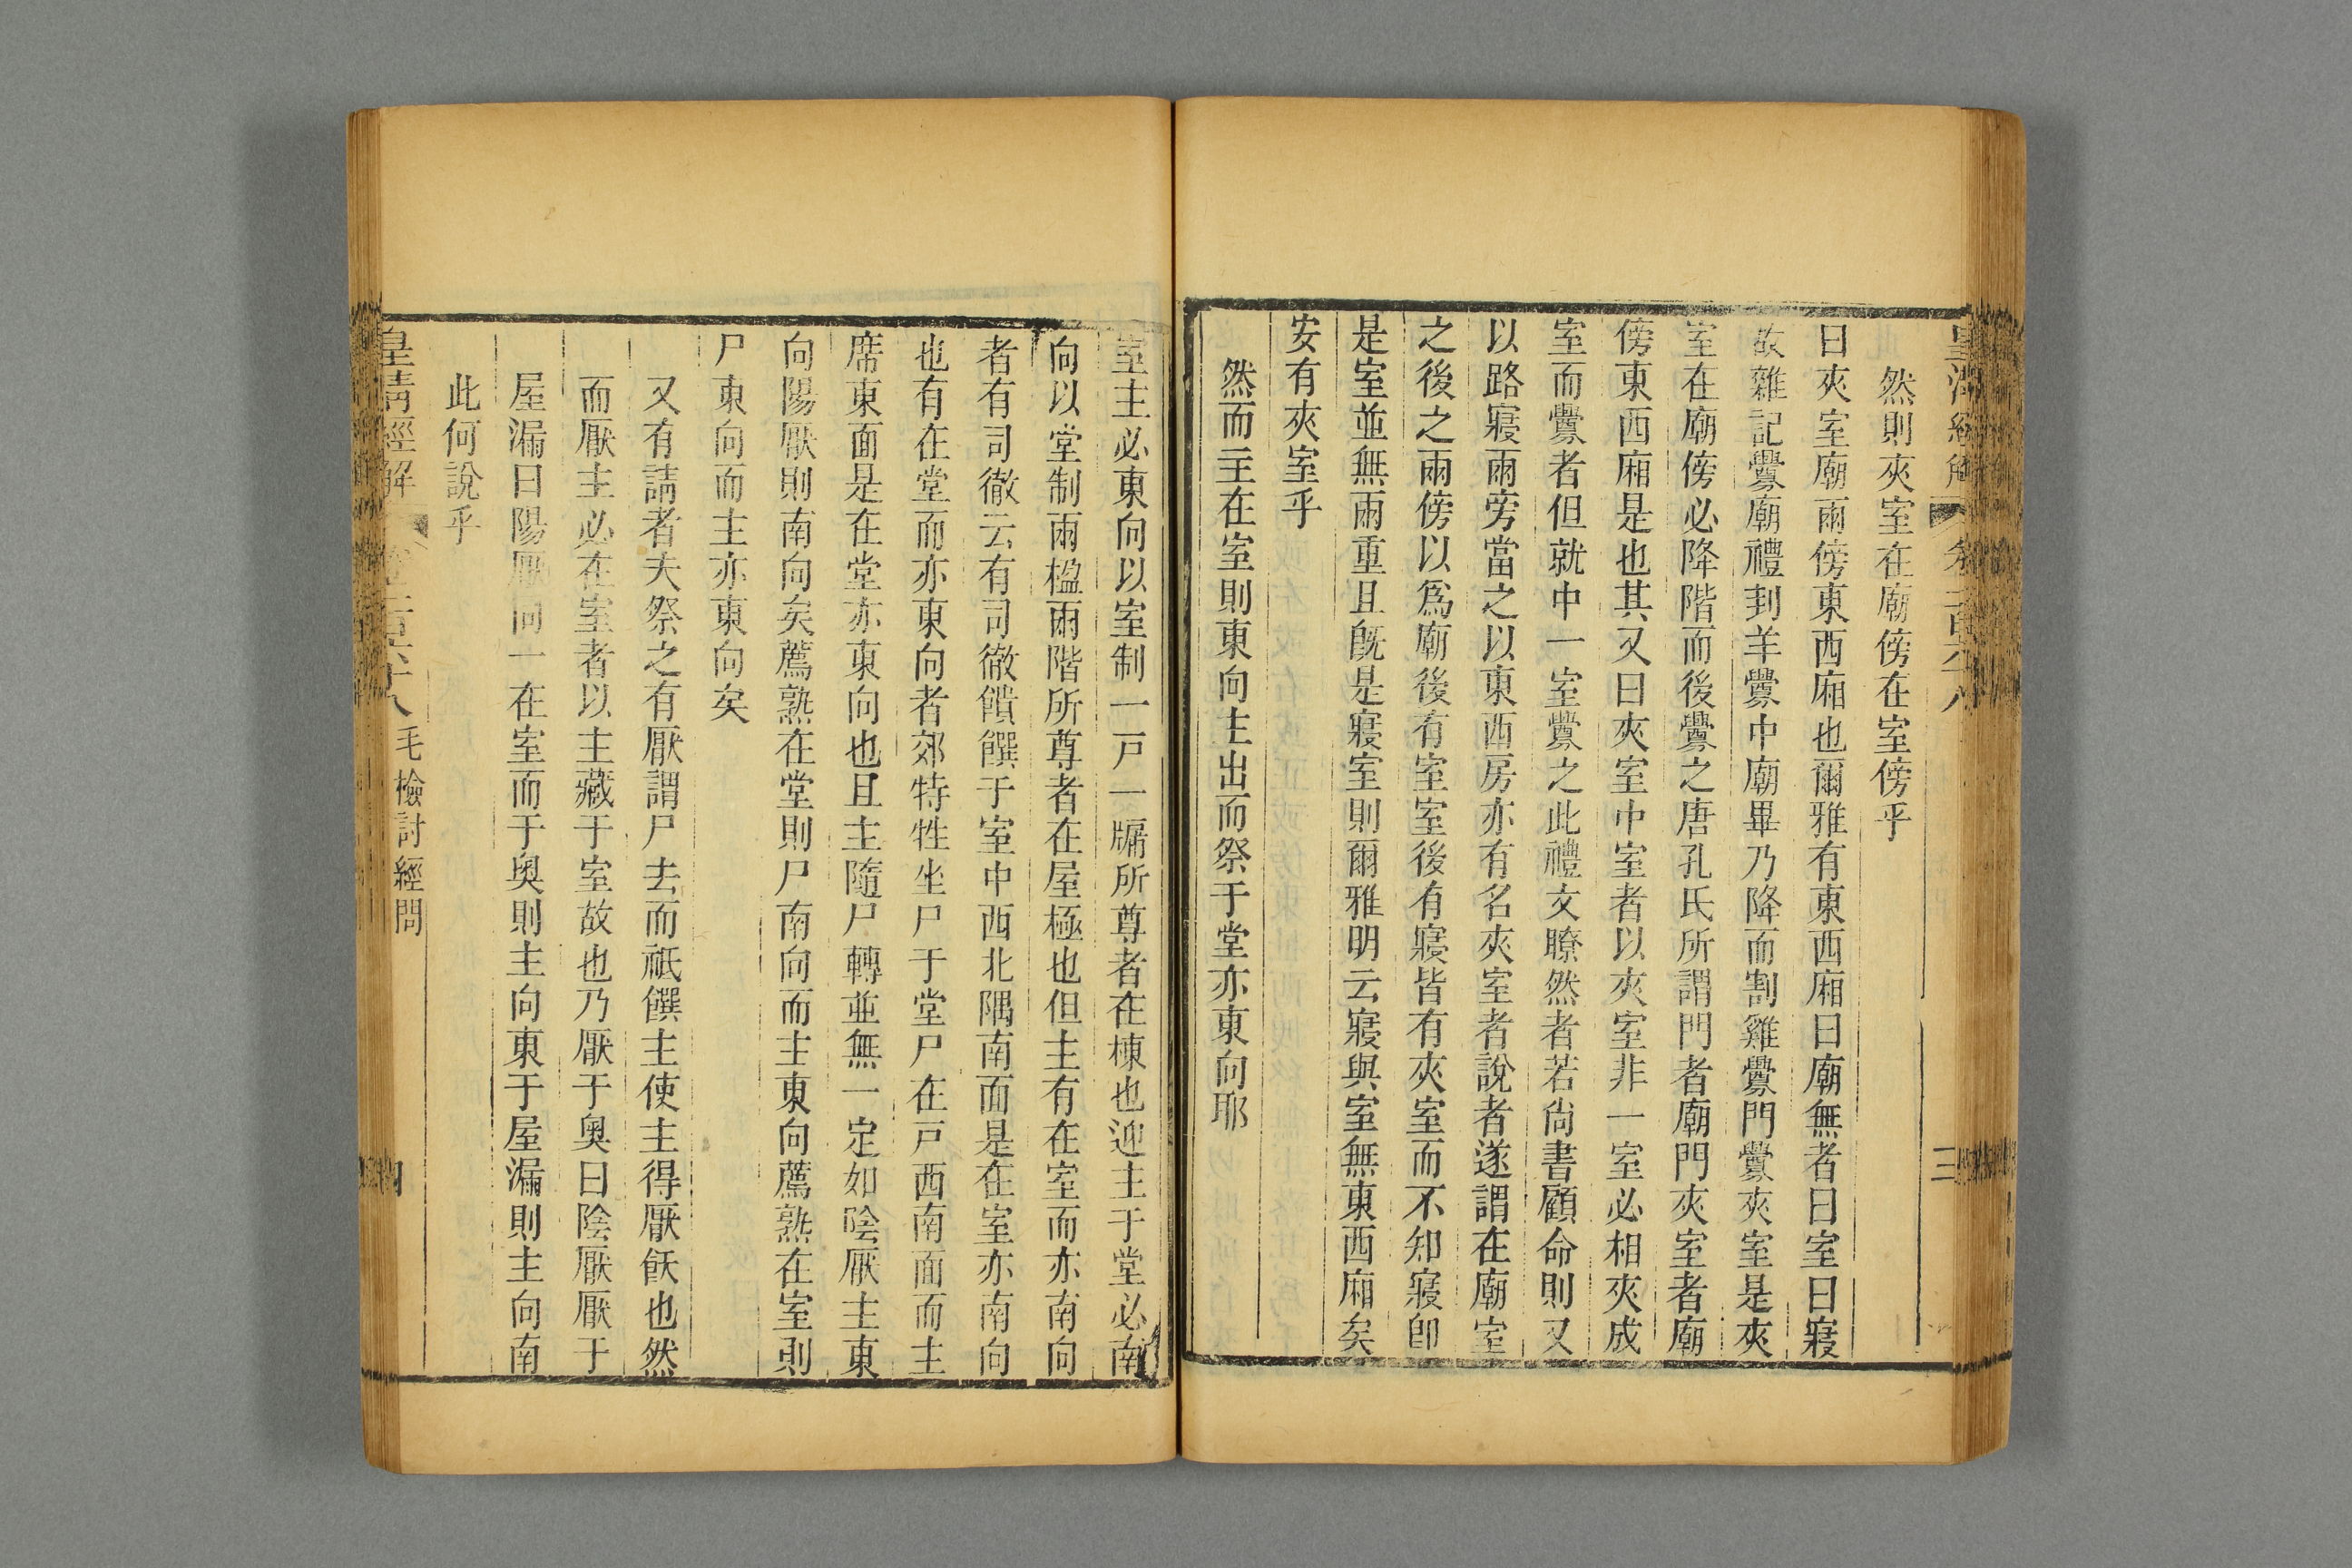 然則夾室在廟傍在室傍乎
曰夾室廟兩傍東西廂也爾雅有東西廂曰廟無者曰室曰寢
故雜記釁廟禮刲羊釁中廟畢乃降而割雞釁門釁夾室是夾
室在廟傍必降階而後釁之唐孔氏所謂門者廟門夾室者廟
傍東西廂是也其又曰夾室中室者以夾室非一室必相夾成
室而釁者但就中一室釁之此禮文瞭然者若尙書顧命則又
以路寢兩旁當之以東西房亦有名夾室者說者遂謂在廟室
之後之兩傍以爲廟後有室室後有寢皆有夾室而不知寢卽
是室並無兩重且旣是寢室則爾雅明云寢與室無東西廂矣
安有夾室乎
然而主在室則東向主出而祭于堂亦東向耶
室主必東向以室制一戸一牖所尊者在棟也迎主于堂必南
向以堂制兩楹兩階所尊者在屋極也但主有在室而亦南向
者有司徹云有司徹饋饌于室中西北隅南面是在室亦南向
也有在堂而亦東向者郊特牲坐尸于堂尸在戸西南面而主
席東面是在堂亦東向也且主隨尸轉並無一定如陰厭主東
向陽厭則南向矣薦熟在堂則尸南向而主東向薦熟在室則
尸東向而主亦東向矣
又有請者夫祭之有厭謂尸去而祇饌主使主得厭飫也然
而厭主必在室者以主藏于室故也乃厭于奧曰陰厭厭于
屋漏曰陽厭同一在室而于奧則主向東于屋漏則主向南
此何說乎
皇清經解 毛檢討經問 四